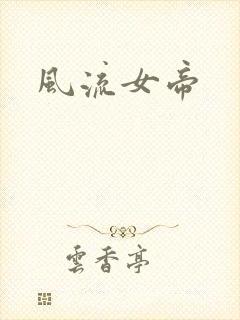 風流女帝
雲香亭